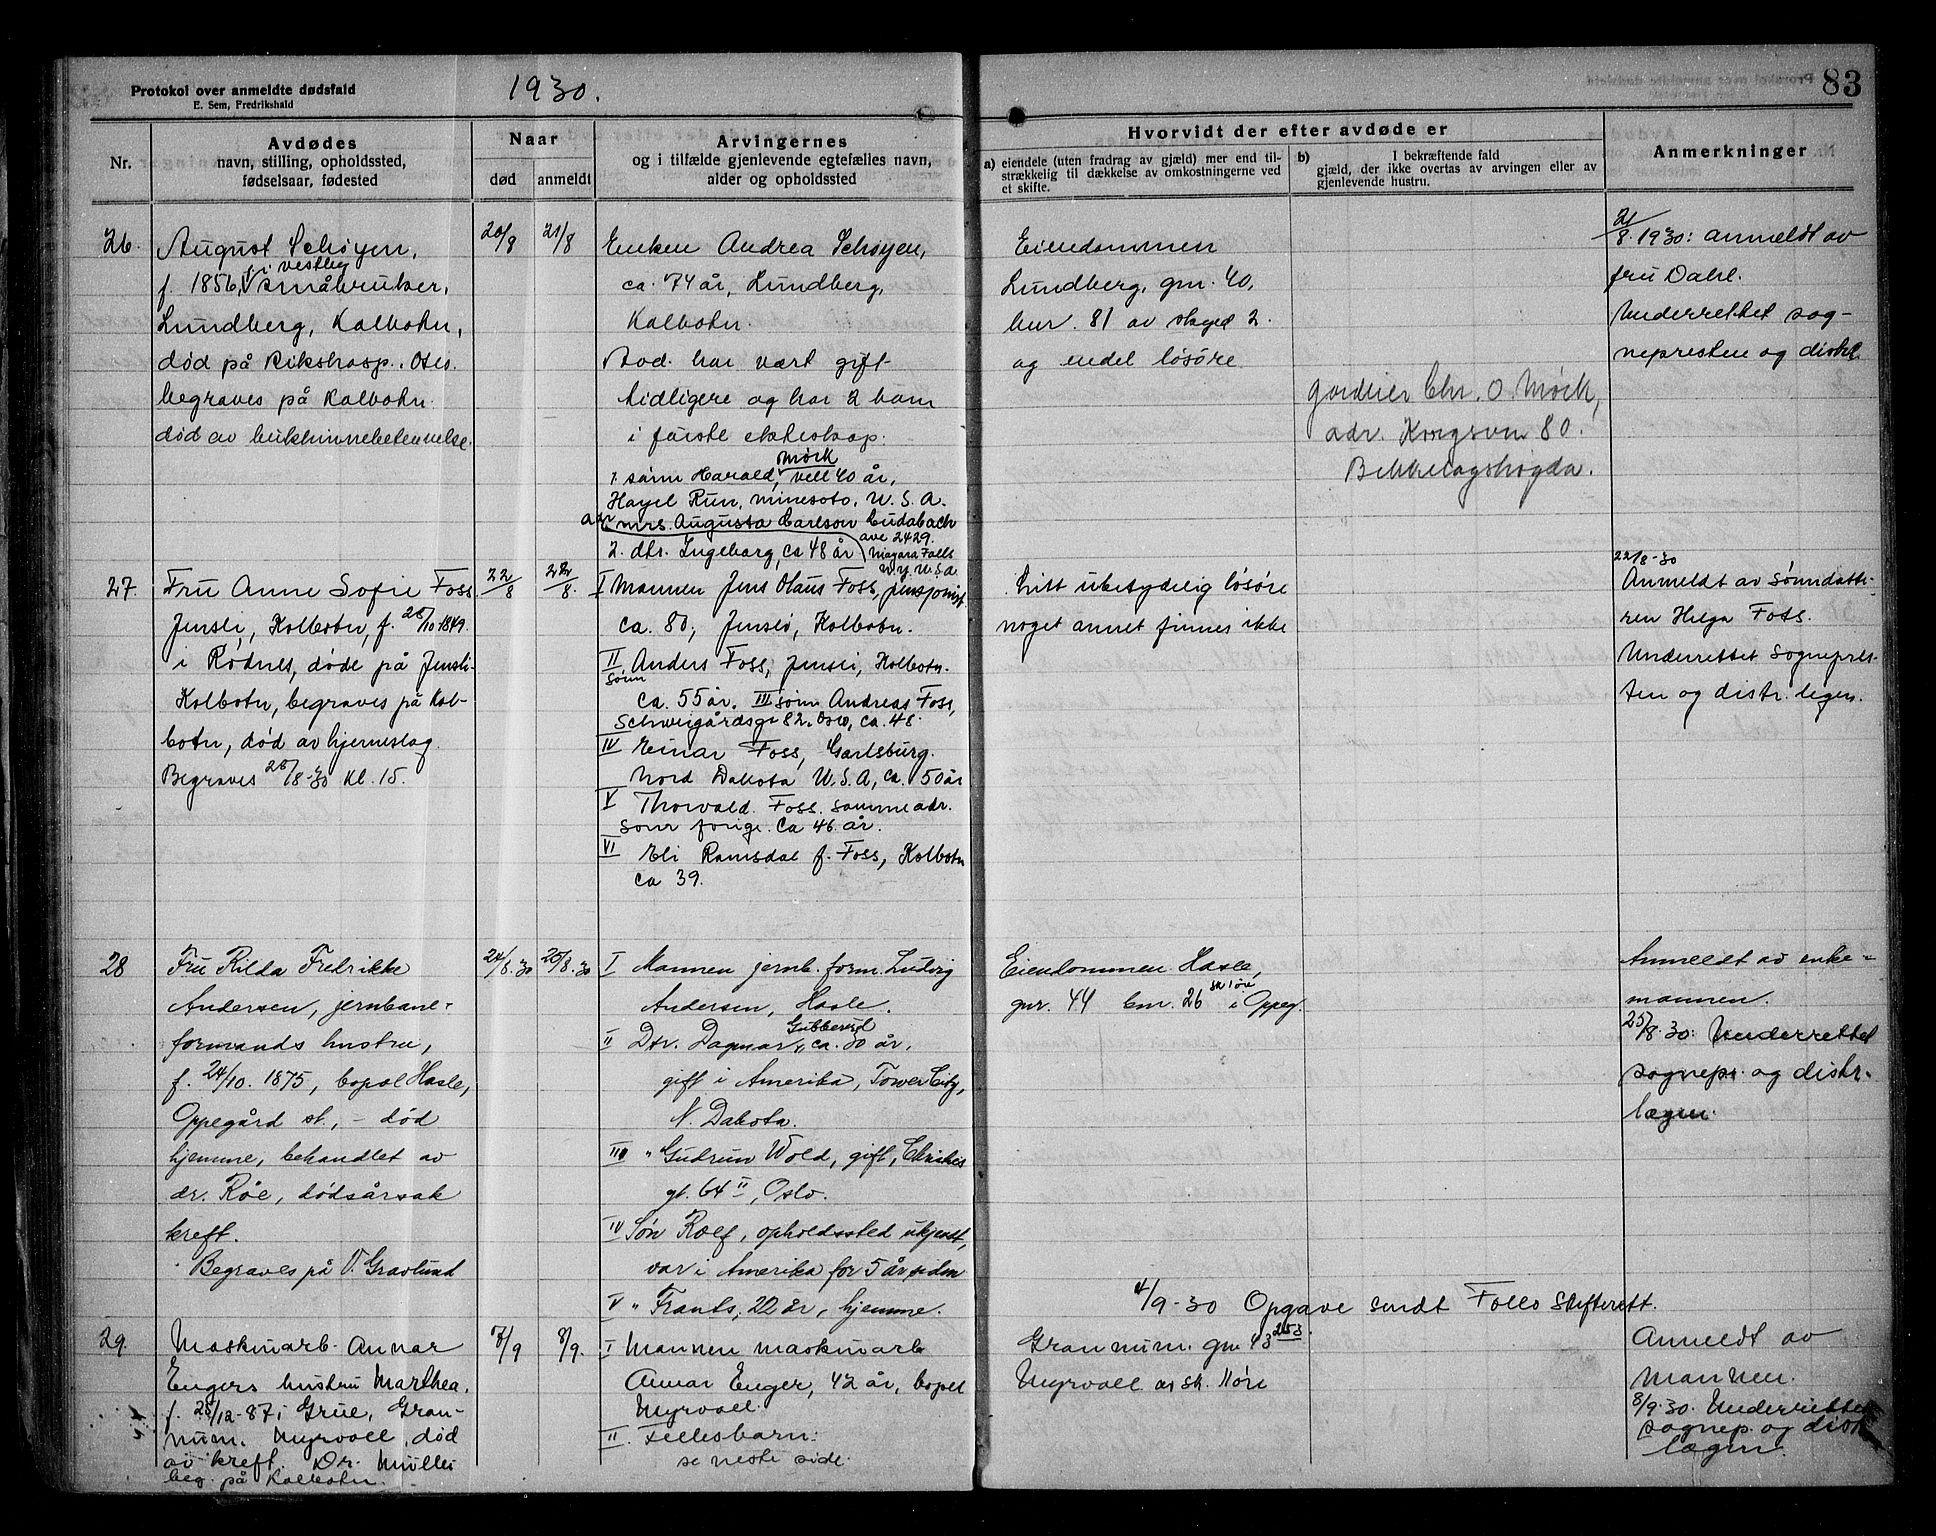 Protokol over anmeldte dødsfald
E. Sem, Fredrikshald
1930.
83
Nr.
Avdødes
navn, stilling, opholdssted,
fødselsaar, fødested
Naar
død
anmeldt
Arvingernes
og i tilfælde gjenlevende egtefælles navn,
alder og opholdssted
Hvorvidt der efter avdøde er
a) eiendele (uten fradrag av gjæld) mer end til-
strækkelig til dækkelse av omkostningerne ved
et skifte.
b) I bekræftende fald
gjæld, der ikke overtas av arvingen eller av
gjenlevende hustru.
Anmerkninger
26.
August Schøyen,
f. 1856, i vestby småbruker,
Lundberg, Kolbotn,
død på Rikshosp. Oslo.
begraves på Kolbotn.
død av bukhinnebetennelse.
20/8
21/8
Enken Andrea Schøyen,
ca. 74 år, Lundberg,
Kolbotn.
Avd. har vært gift
tidligere og har 2 barn
i første ekteskap:
1. sønn Harald Mørk, vell 40 år,
Hayel Run, minesoto, U.S.A.
adr. mrs. Augusta Carlson Cudaback
ave 2429.
2. dtr. Ingeborg, ca 48 år Niagara Falls
N.Y. U.S.A.
Eiendommen
Lundberg, gnr. 40,
bnr. 81 av skyld 2.
og endel løsøre.
gårdeier Chr. O. Mørk,
adr. Kongsvn 80.
Bekkelagshøgda.
21/8. 1930: anmeldt av
fru Dahl.
Underrettet sog-
nepresten og distl.
27.
Fru Anne Sofie Foss
Jensli, Kolbotn, f. 26/10 1849.
i Rødnes, døde på Jensli-
Kolbotn, begraves på Kol-
botn, død av hjerneslag.
Begraves 26/8-30 Kl. 15.
22/8
22/8.
I Mannen Jens Olaus Foss, pensjonist
ca. 80, Jensli, Kolbotn.
II sønn Anders Foss, Jensli, Kolbotn.
ca. 55 år. III sønn Andreas Foss,
Schweigårdsgt 82. Oslo, ca. 48.
IV Einar Foss, Garlsburg.
Nord Dakota U.S.A, ca. 50 år
V Thorvald. Foss. samme adr.
som forige. ca 46. år.
VI Eli Ramsdal f. Foss, Kolbotn
ca 39.
Litt ubetydelig løsøre
noget annet finnes ikke
22/8-30
Anmeldt av sønndatte-
ren Helga Foss.
Underrettet Sognepres-
ten og distr. legen.
28
Fru Rilda Fredrikke
Andersen, jernbane-
formands hustru,
f. 24/10. 1875, bopel Hasle,
Oppegård st., - død
hjemme, behandlet av
dr. Røe, dødsårsak
kreft.
Begraves på V. Gravlund
24/8.30
25/8.30
I Mannen jernb. form. Ludvig
Andersen, Hasle.
II Dtr. Dagmar Gubberud, ca. 30 år,
gift i Amerika, Tower City,
N. Dakota.
III " Gudrun Wold, gift, Christies
gt. 64 II, Oslo.
IV Søn Rolf, opholdssted ukjendt,
var i Amerika for 5 år siden
V " Frants, 22 år, hjemme.
Eiendommen Hasle,
gnr. 44 bnr. 26 sk 1 øre i Oppeg.
Anmeldt av enke-
mannen.
25/8.30: Underrettet
sognepr. og distr.
lægen.
4/9-30 Opgave sendt Follo Skifterett.
29.
Maskinarb. Annar
Engers hustru Marthea,
f. 28/12-87 i Grue, Gran-
num. Myrvoll, død
av kreft. Dr. Müller
beg. på Kolbotn.
7/9
8/9.
I Mannen maskinarb
Annar Enger, 42 år, bopel
Myrvoll.
II. Fellesbarn:
se neste side.
Grannum. gnr. 43 253.
Myrvoll av sk. 11øre
Anmeldt av
mannen.
8/9.30. Underrettet
sognep. og dist
lægen.